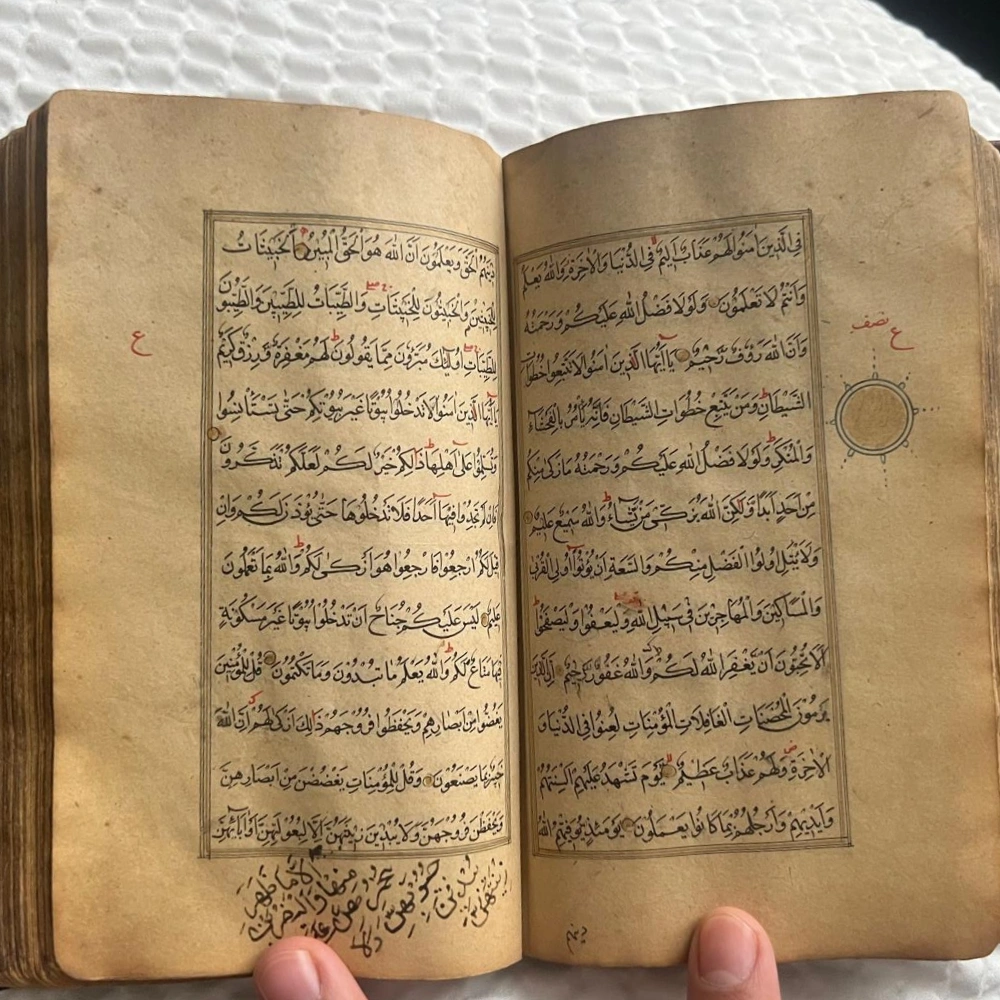 فِي الَّذِينَ اٰمَنُوا لَهُمْ عَذَابٌ اَلِيمٌ فِي الدُّنْيَا وَالْاٰخِرَةِ وَاللّٰهُ يَعْلَمُ
وَاَنْتُمْ لَا تَعْلَمُونَ وَلَوْلَا فَضْلُ اللّٰهِ عَلَيْكُمْ وَرَحْمَتُهُ
وَاَنَّ اللّٰهَ رَؤُفٌ رَحِيمٌ يَا اَيُّهَا الَّذِينَ اٰمَنُوا لَا تَتَّبِعُوا خُطُوَاتِ
الشَّيْطَانِ وَمَنْ يَتَّبِعْ خُطُوَاتِ الشَّيْطَانِ فَاِنَّهُ يَأْمُرُ بِالْفَحْشَاءِ
وَالْمُنْكَرِ وَلَوْلَا فَضْلُ اللّٰهِ عَلَيْكُمْ وَرَحْمَتُهُ مَا زَكٰى مِنْكُمْ
مِنْ اَحَدٍ اَبَدًا وَلٰكِنَّ اللّٰهَ يُزَكِّي مَنْ يَشَاءُ وَاللّٰهُ سَمِيعٌ عَلِيمٌ
وَلَا يَأْتَلِ اُولُوا الْفَضْلِ مِنْكُمْ وَالسَّعَةِ اَنْ يُؤْتُوا اُولِي الْقُرْبٰى
وَالْمَسَاكِينَ وَالْمُهَاجِرِينَ فِي سَبِيلِ اللّٰهِ وَلْيَعْفُوا وَلْيَصْفَحُوا
اَلَا تُحِبُّونَ اَنْ يَغْفِرَ اللّٰهُ لَكُمْ وَاللّٰهُ غَفُورٌ رَحِيمٌ اِنَّ الَّذِينَ
يَرْمُونَ الْمُحْصَنَاتِ الْغَافِلَاتِ الْمُؤْمِنَاتِ لُعِنُوا فِي الدُّنْيَا وَ
الْاٰخِرَةِ وَلَهُمْ عَذَابٌ عَظِيمٌ يَوْمَ تَشْهَدُ عَلَيْهِمْ اَلْسِنَتُهُمْ
وَاَيْدِيهِمْ وَاَرْجُلُهُمْ بِمَا كَانُوا يَعْمَلُونَ يَوْمَئِذٍ يُوَفِّيهِمُ اللّٰهُ
دينهم
نصف
ع
دِينَهُمُ الْحَقَّ وَيَعْلَمُونَ اَنَّ اللّٰهَ هُوَ الْحَقُّ الْمُبِينُ اَلْخَبِيثَاتُ
لِلْخَبِيثِينَ وَالْخَبِيثُونَ لِلْخَبِيثَاتِ وَالطَّيِّبَاتُ لِلطَّيِّبِينَ وَالطَّيِّبُونَ
لِلطَّيِّبَاتِ اُولٰئِكَ مُبَرَّؤُنَ مِمَّا يَقُولُونَ لَهُمْ مَغْفِرَةٌ وَرِزْقٌ كَرِيمٌ
يَا اَيُّهَا الَّذِينَ اٰمَنُوا لَا تَدْخُلُوا بُيُوتًا غَيْرَ بُيُوتِكُمْ حَتّٰى تَسْتَأْنِسُوا
وَتُسَلِّمُوا عَلٰى اَهْلِهَا ذٰلِكُمْ خَيْرٌ لَكُمْ لَعَلَّكُمْ تَذَكَّرُونَ
فَاِنْ لَمْ تَجِدُوا فِيهَا اَحَدًا فَلَا تَدْخُلُوهَا حَتّٰى يُؤْذَنَ لَكُمْ وَاِنْ
قِيلَ لَكُمُ ارْجِعُوا فَارْجِعُوا هُوَ اَزْكٰى لَكُمْ وَاللّٰهُ بِمَا تَعْمَلُونَ
عَلِيمٌ لَيْسَ عَلَيْكُمْ جُنَاحٌ اَنْ تَدْخُلُوا بُيُوتًا غَيْرَ مَسْكُونَةٍ
فِيهَا مَتَاعٌ لَكُمْ وَاللّٰهُ يَعْلَمُ مَا تُبْدُونَ وَمَا تَكْتُمُونَ قُلْ لِلْمُؤْمِنِينَ
يَغُضُّوا مِنْ اَبْصَارِهِمْ وَيَحْفَظُوا فُرُوجَهُمْ ذٰلِكَ اَزْكٰى لَهُمْ اِنَّ اللّٰهَ
خَبِيرٌ بِمَا يَصْنَعُونَ وَقُلْ لِلْمُؤْمِنَاتِ يَغْضُضْنَ مِنْ اَبْصَارِهِنَّ
وَيَحْفَظْنَ فُرُوجَهُنَّ وَلَا يُبْدِينَ زِينَتَهُنَّ اِلَّا لِبُعُولَتِهِنَّ اَوْ اٰبَائِهِنَّ
ع
الا ما ظهر
منها وليضربن
بخمرهن على
جيوبهن ولا
يبدين
زينتهن